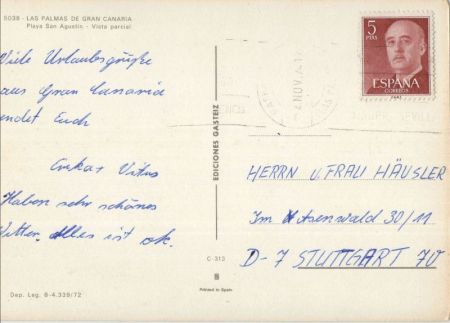 5038 - LAS PALMAS DE GRAN CANARIA
Playa San Agustin - Vista parcial
Viele Urlaubsgrüße
aus Gran Canaria
endet Euch
Vitus
Haben sehr schönes
Wetter. Alles ist ok.
EDICIONES GASTEIZ
C 313
Printed in Spain
Dep. Leg. B-4.339/72
5
PTAS
ESPAÑA
CORREOS
HERRN u. FRAU HÄUSLER
Im 30/11
D-7 STUTTGART 70